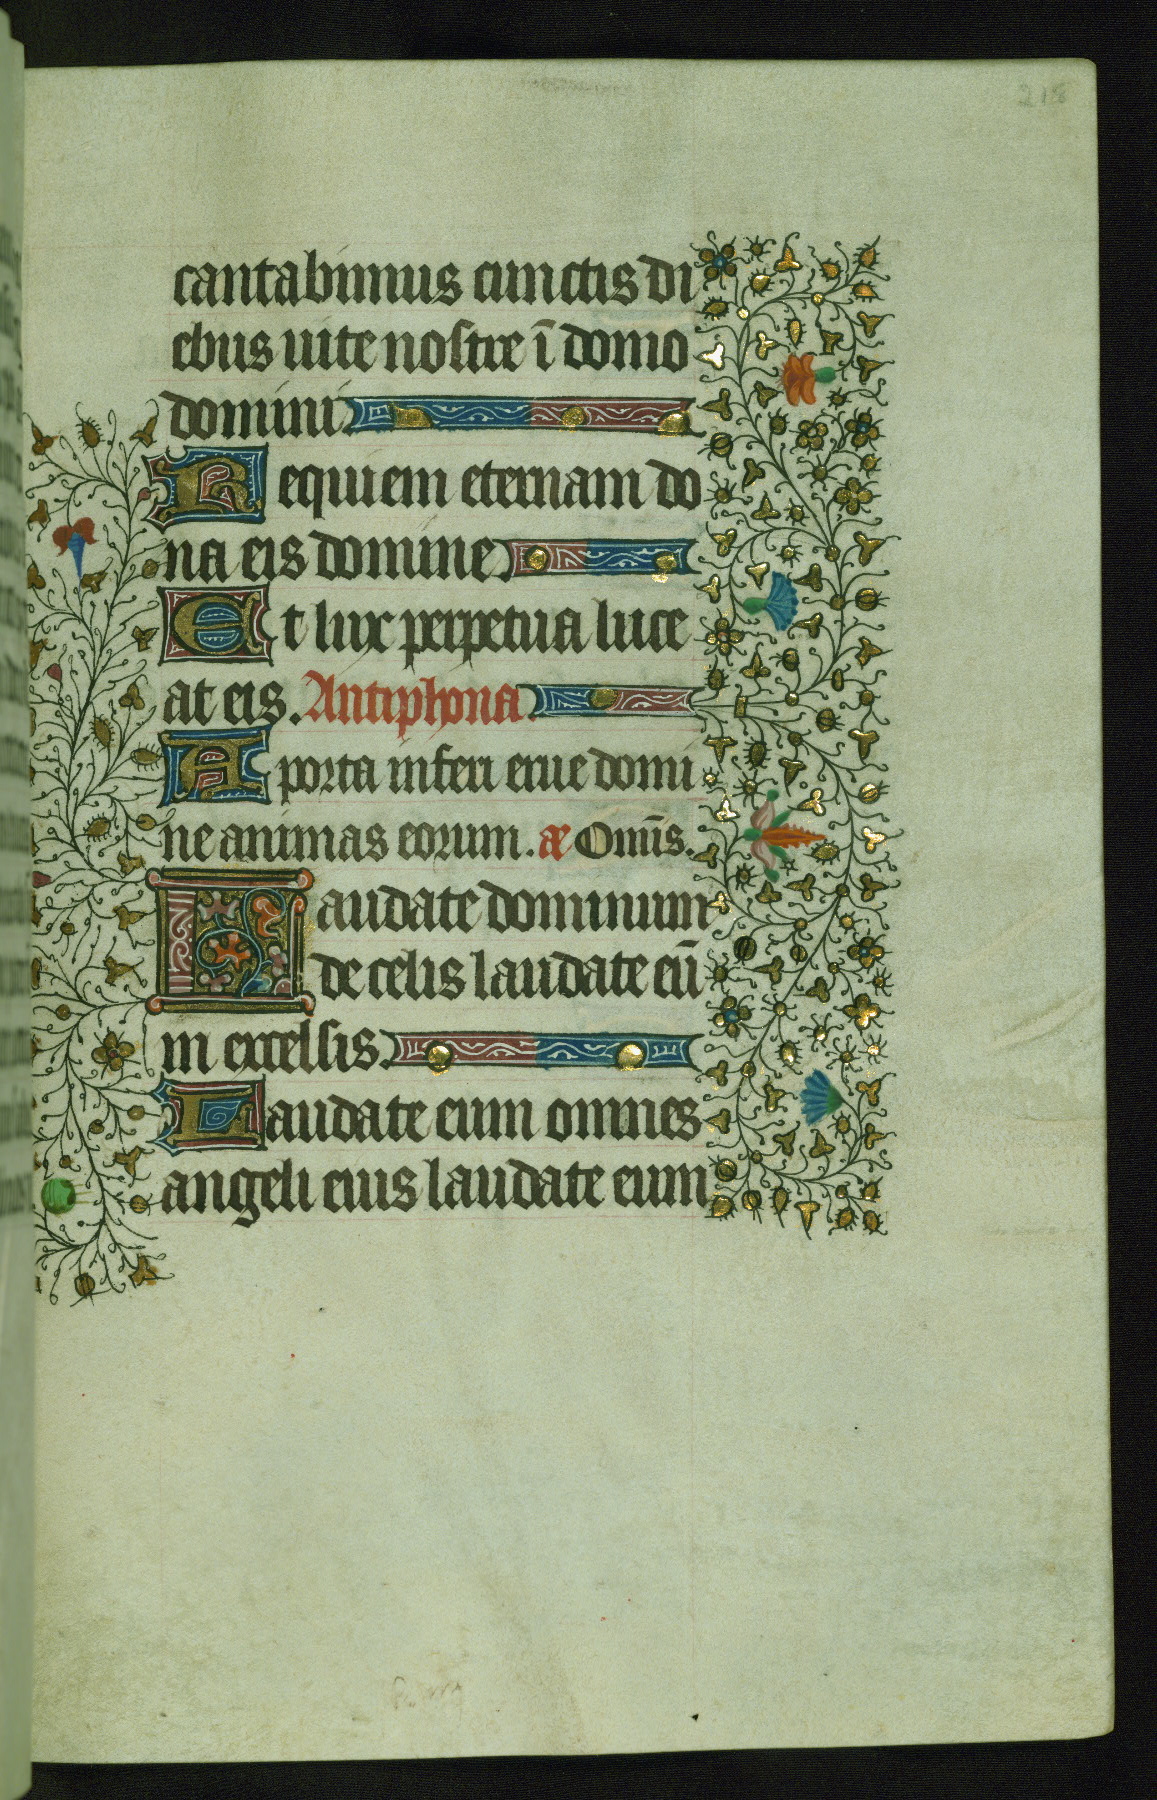 218
cantabimus cunctis di
ebus uite nostre ī domo
domini
Requiem eternam do
na eis domine
Et lux perpetua luce
at eis. Antiphona
A porta inferi erue domi
ne animas eorum. æ Omīs.
Laudate dominum
de celis laudate eū
in excelsis
Laudate eum omnes
angeli eius laudate eum